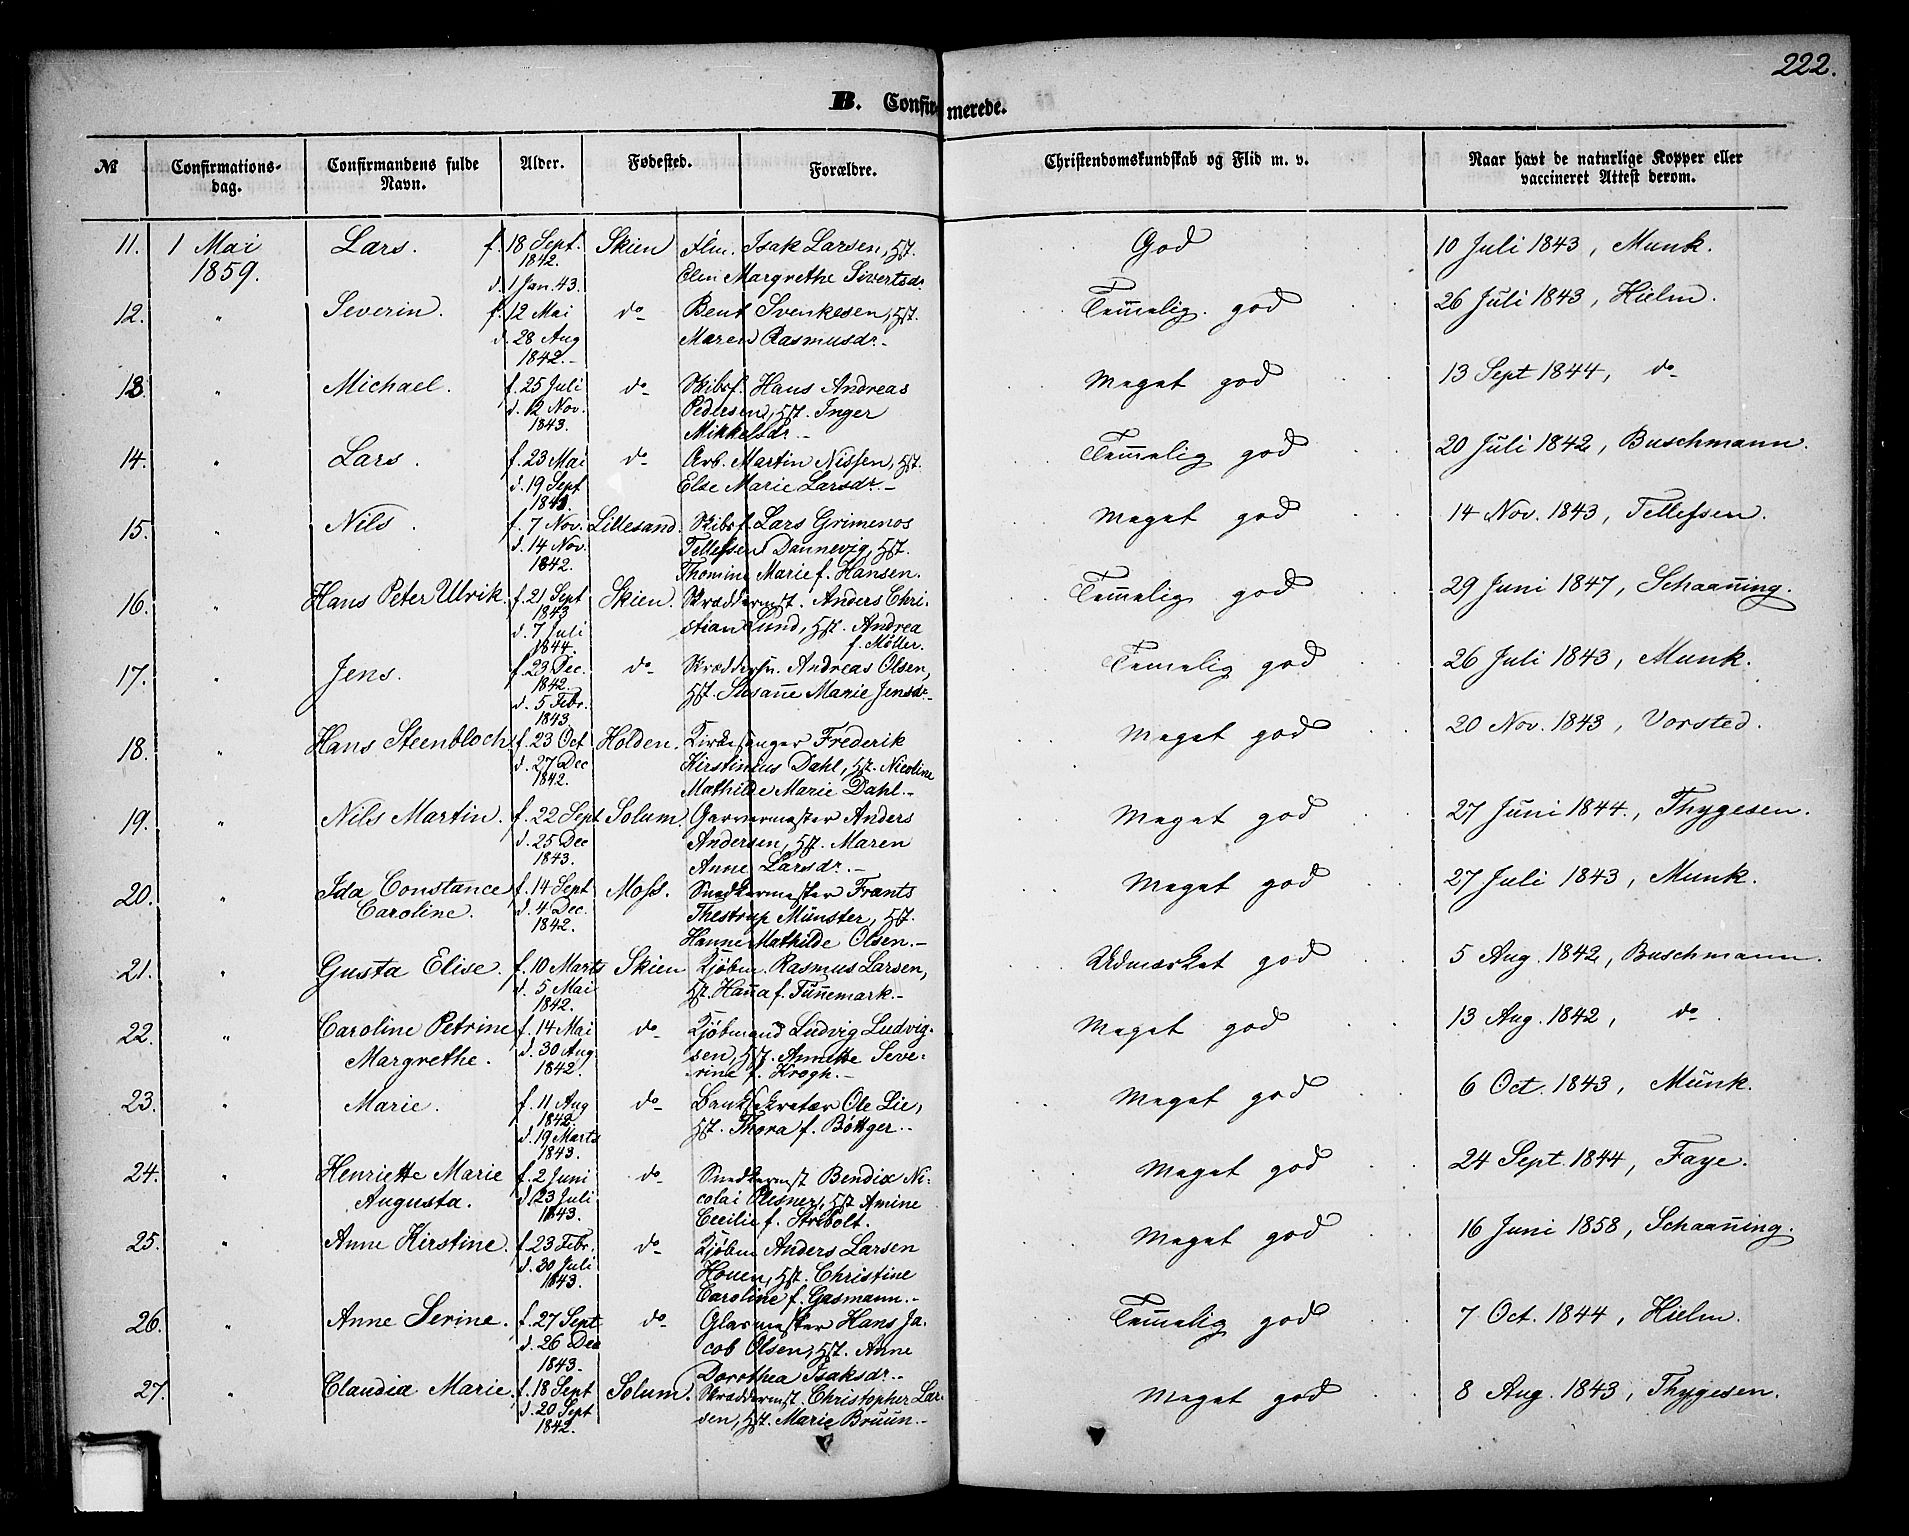 222.
B. Confirmerede.
№ Confirmations- Confirmandens fulde Alder. Fødested. Forældre. Christendomskundskab og Flid m. v. Naar havt de naturlige Kopper eller
dag. Navn. vaccineret Attest derom.
11. 1 Mai Lars. f. 18 Sept. Skien Flm. Isak Larsen, Hst. God 10 Juli 1843, Munk.
1859. 1842. Elen Margrethe Sivertsdr
d. 1 Jan. 43.
12. " Severin. f. 12 Mai do Bent Svenkesen, Hst. Temelig god 26 Juli 1843, Hielm.
d. 28 Aug Maren Rasmusdr.-
1842.-
13. " Michael. f. 25 Juli do Skibsf. Hans Andreas Meget god 13 Sept 1844, do
d. 12 Nov. Pedersen, Hst. Inger
1843. Mikkelsdr.-
14. " Lars. f. 23 Mai do Arb. Martin Nissen, Hst. Temelig god 20 Juli 1842, Buschmann.
d. 19 Sept Else Marie Larsdr.-
15. " Nils. f. 7 Nov. Lillesand. Skibsf. Lars Grimenos Meget god 14 Nov. 1843, Tellefsen.
d. 14 Nov. Tellefsen Dannevig, Hst.
1842. Thomine Marie f. Hansen.
16. " Hans Peter Ulrik f. 21 Sept Skien. Skræddermst. Anders Chri- Temelig god 29 Juni 1847, Schaaning.
1843 stian Lund, Hst. Andrea
d. 7 Juli f. Möller.
1844.
17. " Jens. f. 23 Dec. do Skræddersv. Andreas Olsen, Temelig god 26 Juli 1843, Munk.
1842. Hst. Susane Marie Jensdr.-
d. 5 Febr.
1843.
18. " Hans Steenbloch f. 23 Oct Holden. Kirkesanger Frederik Meget god 20 Nov. 1843, Vorsted.
d. 27 Dec Kirstinius Dahl, Hst. Nicoline
1842. Mathilde Marie Dahl.-
19. " Nils Martin. f. 22 Sept Solum. Garvermester Anders Meget god 27 Juni 1844., Thygesen.
d. 25 Dec Andersen, Hst. Maren
1843. Anne Larsdr.-
20. " Ida Constance f. 14 Sept Moss. Snedkermester Frants Meget god 27 Juli 1843, Munk.
Caroline. d. 4 Dec. Thestrup Münster, Hst.
1842. Hanne Mathilde Olsen.-
21. " Gusta Elise. f. 10 Marts Skien Kjøbm. Rasmus Larsen, Udmærket god 5 Aug. 1842, Buschmann.
d. 5 Mai Hst. Hana f. Funemark.-
1842.
22. " Caroline Petrine f. 14 Mai do Kjøbmand Ludvig Ludvig- Meget god 13 Aug. 1842, do
Margrethe. d. 30 Aug. sen, Hst. Annette Seve-
1842. rine f. Krogh.-
23. " Marie. f. 11 Aug do Banksekretær Ole Lie, Meget god 6 Oct. 1843, Munk.
1842. Hst. Thora f. Böttger.-
d. 19 Marts
1843.
24. " Henriette Marie f. 2 Juni do Snedkermst Bendix Ni- Meget god 24 Sept. 1844, Faye.
Augusta. d. 23 Juli colai Plesner, Hst Amine
1843. Cecilie f. Stribolt.
25. " Anne Kirstine. f. 23 Febr. do Kjøbm Anders Larsen Meget god 16 Juni 1858, Schaaning.
d. 30 Juli Houen, Hst. Christine
1843. Caroline f. Gasmann.-
26. " Anne Serine. f. 27 Sept do Glarmester Hans Ja- Temelig god 7 Oct. 1844, Hielm.
d. 26 Dec cob Olsen, Hst. Anne
1843. Dorothea Isaksdr.-
27. " Claudia Marie. f. 18 Sept Solum. Skræddermst. Christopher Lar- Meget god 8 Aug. 1843, Thygesen.
d. 20 Sept sen, Hst. Marie Bruun.-
1842.